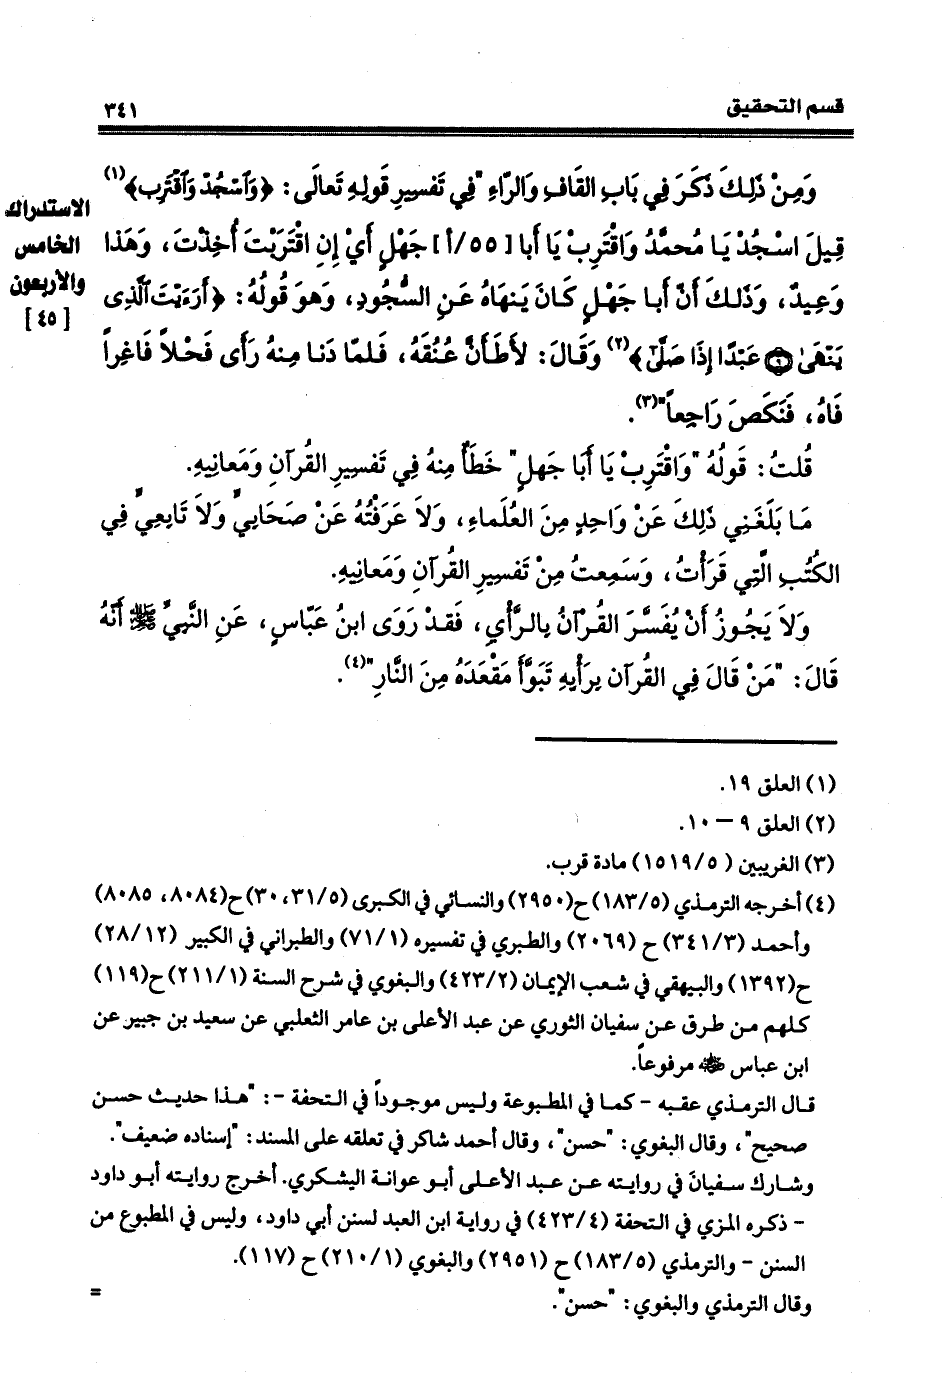 قسم التحقيق
٣٤١
وَمِنْ ذَلِكَ ذَكَرَ فِي بَابِ القَافِ وَالرَّاءِ "فِي تَفسِيرِ قَولِهِ تَعَالَى: ﴿وَٱسْجُدْ وَٱقْتَرِب﴾(١)
قِيلَ اسْجُدْ يَا مُحمَّدُ وَاقْتَرِبْ يَا أبا [٥٥/أ] جَهْلٍ أيْ إنِ اقْتَرَبْتَ أُخِذْتَ، وَهَذا
وَعِيدٌ، وَذَلكَ أنَّ أبا جَهْلٍ كَانَ يَنهَاهُ عَنِ السُّجُودِ، وَهوَ قَولُهُ: ﴿أَرَءَيْتَ ٱلَّذِى
يَنْهَىٰ ۝٩ عَبْدًا إِذَا صَلَّىٰٓ﴾(٢) وَقَالَ: لأَطَأَنَّ عُنُقَهُ، فَلمَّا دَنا مِنهُ رَأى فَحْلاً فَاغِراً
فَاهُ، فَنَكَصَ رَاجِعاً"(٣).
الاستدراك
الخامس
والأربعون
[٤٥]
قُلتُ: قَولُهُ "وَاقْتَرِبْ يَا أَبَا جَهلٍ" خَطَأٌ مِنهُ فِي تَفسِيرِ القُرآنِ وَمَعَانِيهِ.
مَا بَلَغَنِي ذَلِكَ عَنْ وَاحِدٍ مِنَ العُلَماءِ، وَلاَ عَرَفْتُهُ عَنْ صَحَابِيٍّ وَلاَ تَابِعِيٍّ فِي
الكُتُبِ الَّتِي قَرَأْتُ، وَسَمِعتُ مِنْ تَفسِيرِ القُرآنِ وَمَعَانِيهِ.
وَلاَ يَجُوزُ أَنْ يُفَسَّرَ القُرآنُ بِالرَّأْيِ، فَقدْ رَوَى ابنُ عَبَّاسٍ، عَنِ النَّبِيِّ ﷺ أنَّهُ
قَالَ: "مَنْ قَالَ فِي القُرآن بِرَأْيِهِ تَبَوَّأَ مَقْعَدَهُ مِنَ النَّارِ"(٤).
(١) العلق ١٩.
(٢) العلق ٩ – ١٠.
(٣) الغريبين (١٥١٩/٥) مادة قرب.
(٤) أخرجه الترمذي (١٨٣/٥) ح(٢٩٥٠) والنسائي في الكبرى (٣١/٥، ٣٠) ح(٨٠٨٤، ٨٠٨٥)
وأحمد (٣٤١/٣) ح (٢٠٦٩) والطبري في تفسيره (٧١/١) والطبراني في الكبير (٢٨/١٢)
ح(١٣٩٢) والبيهقي في شعب الإيمان (٤٢٣/٢) والبغوي في شرح السنة (٢١١/١) ح(١١٩)
كلهم من طرق عن سفيان الثوري عن عبد الأعلى بن عامر الثعلبي عن سعيد بن جبير عن
ابن عباس ﵁ مرفوعاً.
قال الترمذي عقبه - كما في المطبوعة وليس موجوداً في التحفة -: "هذا حديث حسن
صحيح"، وقال البغوي: "حسن"، وقال أحمد شاكر في تعلقه على المسند: "إسناده ضعيف".
وشارك سفيانَ في روايته عن عبد الأعلى أبو عوانة اليشكري. أخرج روايته أبو داود
- ذكره المزي في التحفة (٤٢٣/٤) في رواية ابن العبد لسنن أبي داود، وليس في المطبوع من
السنن - والترمذي (١٨٣/٥) ح (٢٩٥١) والبغوي (٢١٠/١) ح (١١٧).
وقال الترمذي والبغوي: "حسن".
=